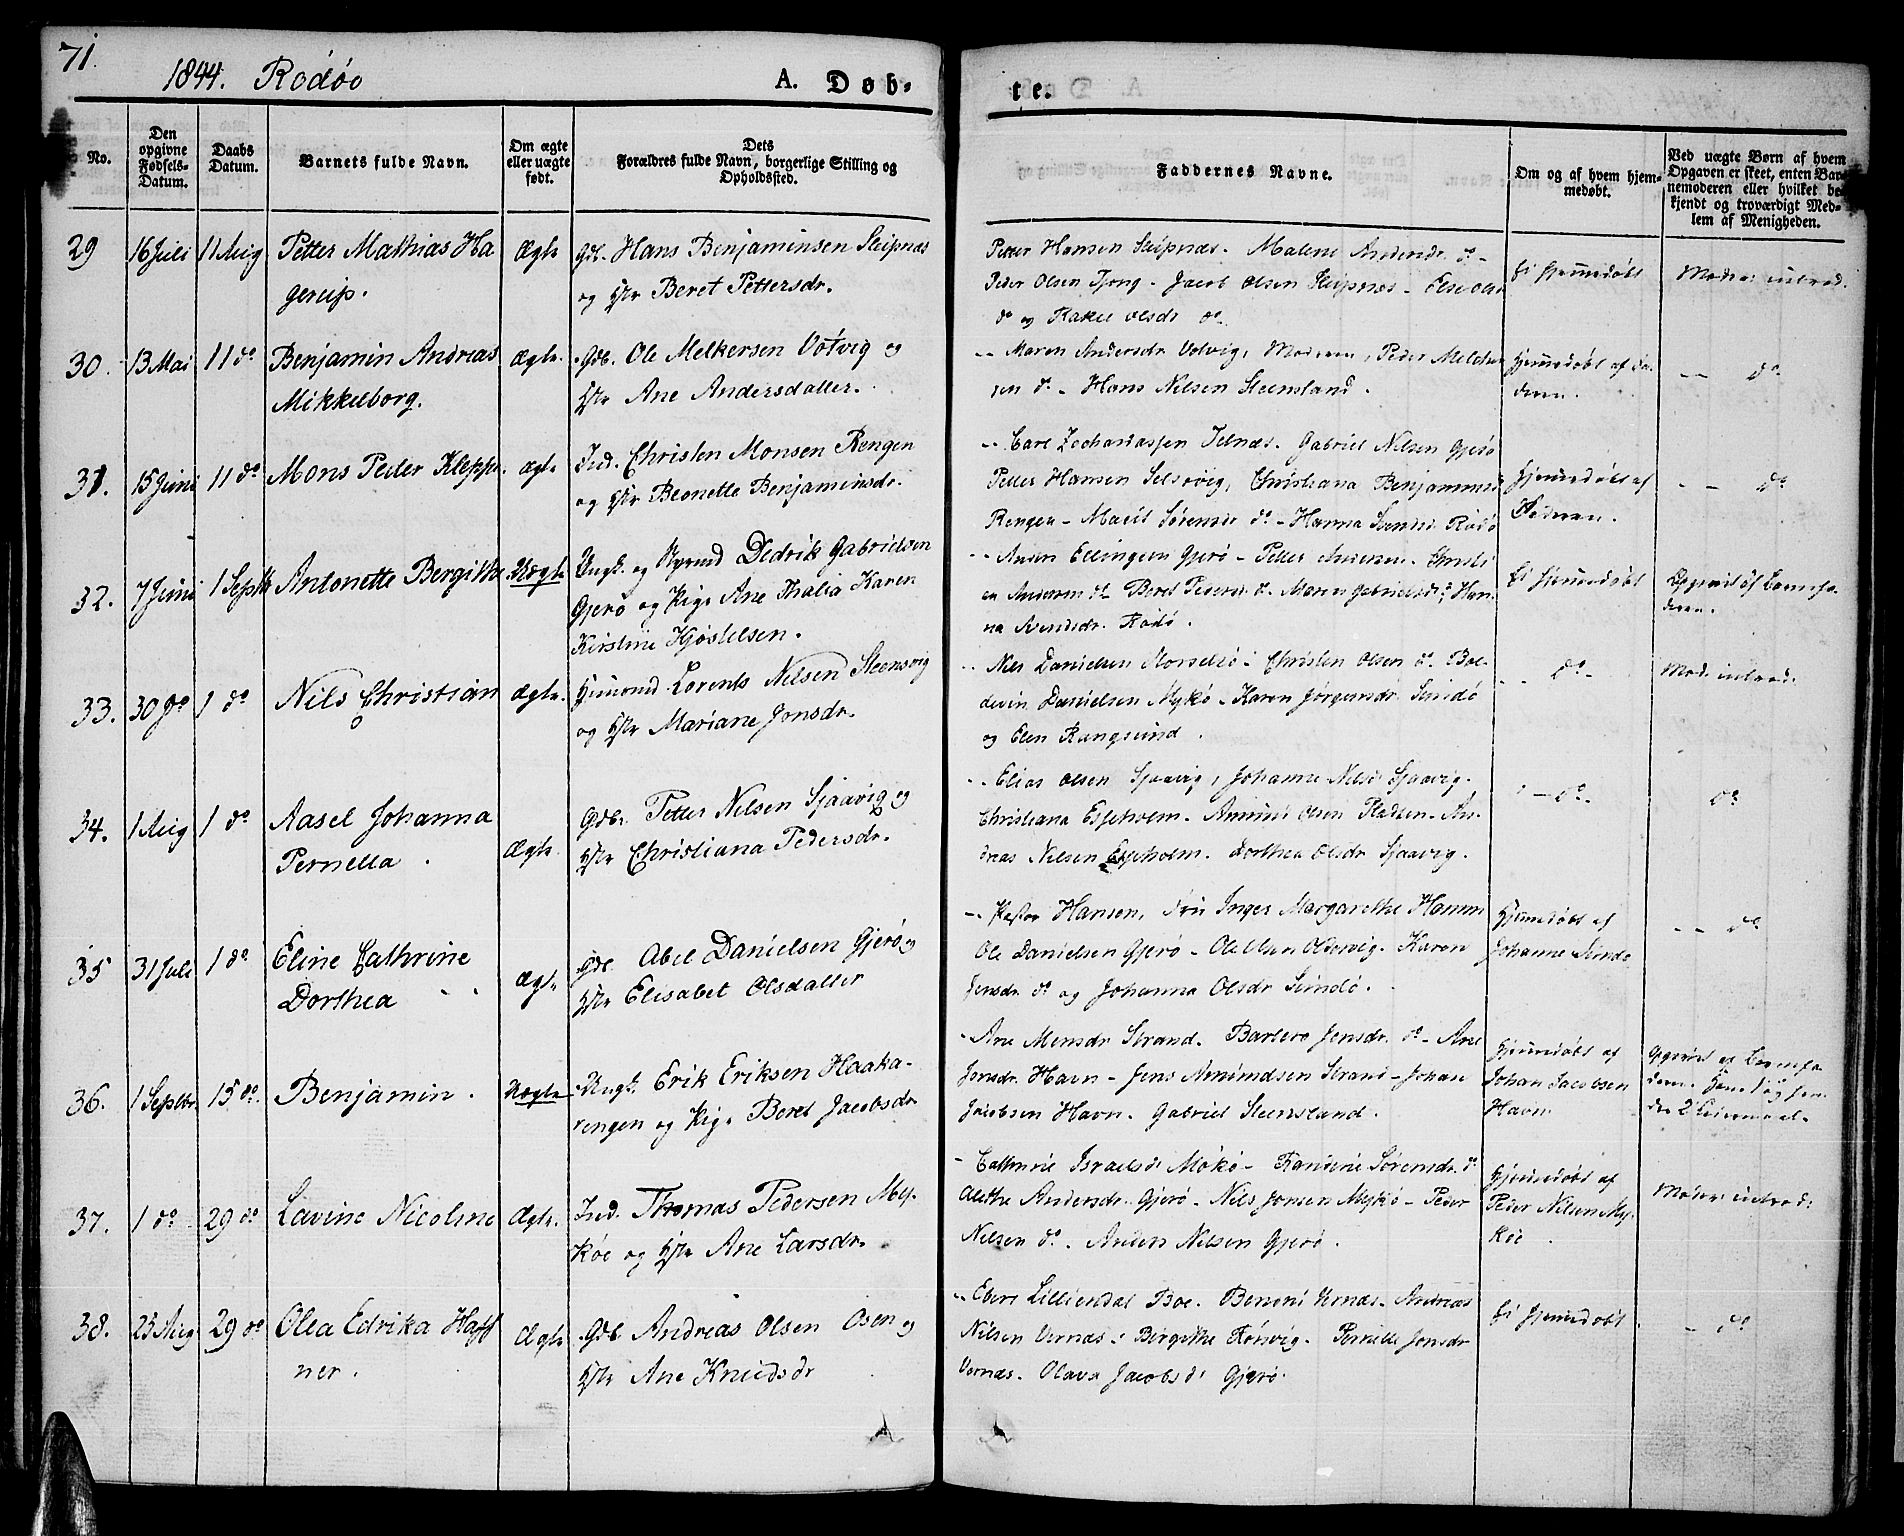 71.
1844. Rodøe
A. Døb-
te.
No.
Den opgivne Fødsels-Datum.
Daabs Datum.
Barnets fulde Navn.
Om ægte eller uægte født.
Dets Forældres fulde Navn, borgerlige Stilling og Opholdssted.
Faddernes Navne.
Om og af hvem hjemmedøbt.
Ved uægte Børn af hvem Opgaven er skeet, enten Barnemoderen eller hvilket bekjendt og troværdigt Medlem af Menigheden.
29 16 Juli 11 Aug Petter Mathias Ha
gerup.
Ægte
Gdb. Hans Benjaminsen Sleipnæs
og Hstr Beret Pettersdr.
Petter Hansen Sleipnæs. Malene Andersdr. do -
Peder Olsen Tjong - Jacob Olsen Sleipnæs - Else Olsdr
do og Rakel Olsdr do
Ei hjemmedøbt
Moder: introd.
30. 13 Mai 11 do Benjamin Andreas
Mikkelborg.
Ægte.
Gdb. Ole Melkersen Votvig og
Hstr Ane Andersdatter.
Maren Andersdr Votvig, Moderen, Peder Melcher
sen do - Hans Nilsen Steensland.
Hjemmedøbt af Fa-
deren.
do
31. 15 Juni 11 do Mons Peder Kleppe.
ægte
Ind. Christen Monsen Rengen
og Hstr Beonette Benjaminsdr.
Carl Zachariassen Selnæs. Gabriel Nilsen Gjerø
Petter Hansen Selsøvig, Christiana Benjaminsd
Rengen - Marit Sørensdr do - Hanna Svendsd Rødø
Hjemmedøbt af
Faderen.
do
32. 7 Juni 1 Septb Antonette Bergithe
Uægte
Ungk. og Rorsmd Dedrik Gabrielsen
Gjerø og Pige Ane Thalia Karen
Kirstine Hjostelsen.
Anders Ellingsen Gjerø - Petter Andersen - Christi
an Andersen do Beret Pedersd do. Maren Gabrielsdr do, Han-
na Svendsdr. Rødø.
Ei hjemmedøbt
Opgivet af Barnefa-
deren.
33. 30 do 1 do Nils Christian
Ægte.
Huusmd Lorents Nilsen Steensvig
og Hstr Mariane Jonsdr.
Nils Danielsen Norselsø - Christen Olsen do. Bol-
devin Danielsen Mykø - Karen Jørgensdr. Sundø
og Elen Rangsund.
do -
Mod. introd.
34. 1 Aug 1 do Aasel Johanna
Pernella.
Ægte.
Gdbr Petter Nilsen Sjaavig og
Hstr Christiana Pedersdr.
Elias Olsen Sjaavig, Johanne Nilsd Sjaavig.
Christiana Espeholm. Amund Olsen Pladsen. An-
dreas Nilsen Espeholm. Dorthea Olsdr Sjaavig.
do.
do
35 31 Juli 1 do Eline Cathrine
Dorthea
ægte
Gdb. Abel Danielsen Gjerø og
Hstr Elisabet Olsdatter
Pastor Hansen, Fru Inger Margarethe Hansen
Ole Danielsen Gjerø - Ole Olsen Oldervig. Karen
Jensdr. do og Johanna Olsdr Sundø.
Hjemmedøbt af
Johanne Sundø
do
36. 1 Septbr 15 do. Benjamin.
Uægte
Ungk. Erik Eriksen Haaka-
rengen og Pige Beret Jacobsdr
Ane Monsdr Strand. Barbero Jensdr. do - Ane
Jonsdr. Havn - Jens Amundsen Strand - Johan
Jacobsen Havn. Gabriel Steensland.
Hjemmedøbt af
Johan Jacobsen
Havn
Opgivet af Barnefa-
deren. Hans 1 og hen-
des 2 Leiermaal.
37. 1 do 29 do Lavine Nicoline
Ægte.
Ind. Thomas Pedersen My-
køe og Hstr Ane Larsdr.
Cathrine Israelsd Mykø - Randine Sørensdr. do
Alethe Andersdr. Gjerø - Nils Jonsen Mykø - Peder
Nilsen do. Anders Nilsen Gjerø.
Hjemmedøbt af
Peder Nilsen My-
køe
Moder: introd:
38. 23 Aug 29 do Olea Edrika Haff
ner.
Ægte
Gdb. Andreas Olsen Osen og
Hstr Ane Knudsdr
Ebert Lilliendal Boe. Benoni Vernæs. Andreas
Nilsen Vernæs. Birgithe Rønvig. Pernille Jonsdr
Vernæs. Olava Jacobsd Gjerø.
Ei hjemmedøbt
do